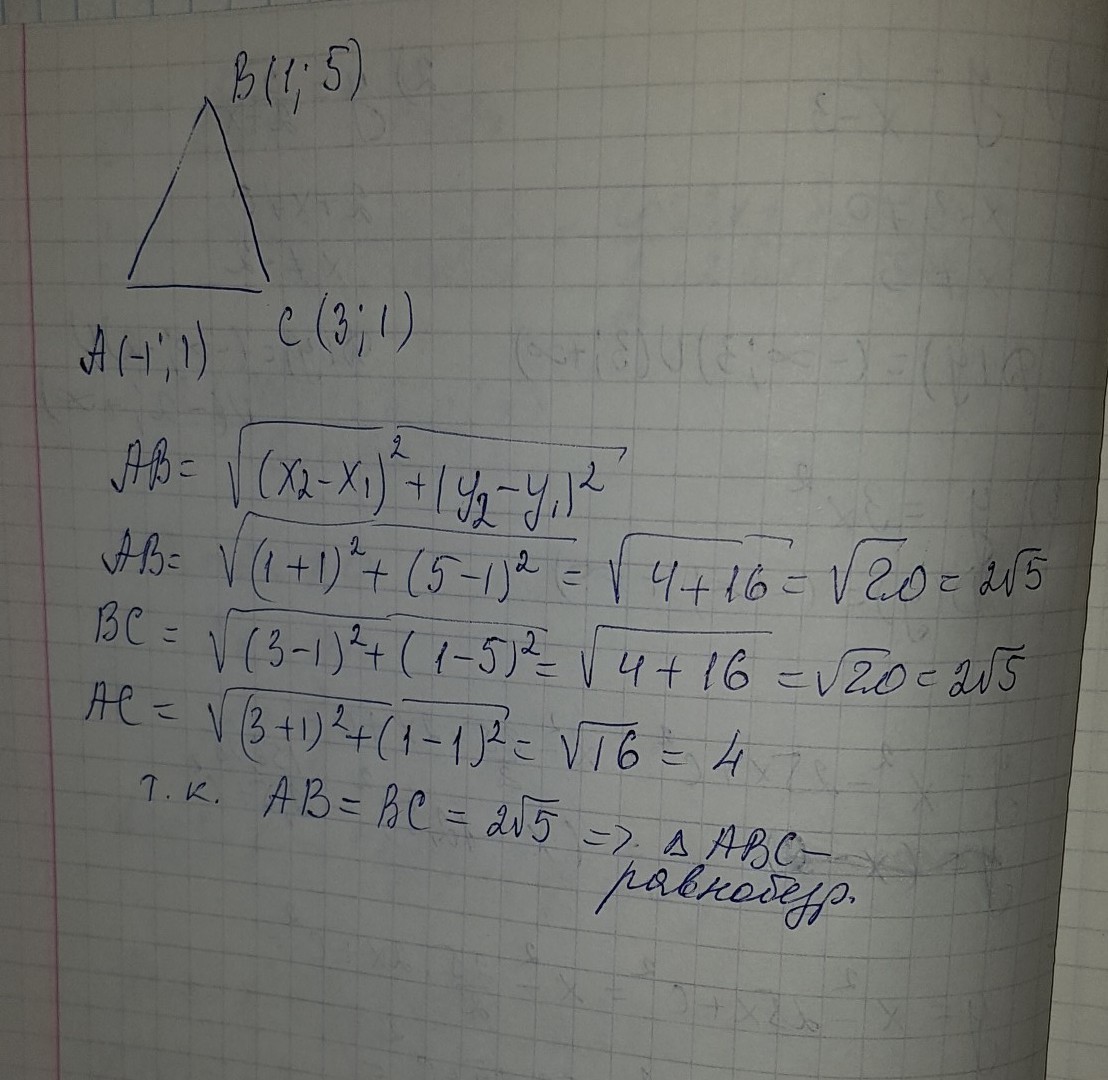 B(1; 5)
A(-1; 1)
C(3; 1)
AB = √((x₂-x₁)² + (y₂-y₁)²)
AB = √((1+1)² + (5-1)²) = √(4+16) = √20 = 2√5
BC = √((3-1)² + (1-5)²) = √(4+16) = √20 = 2√5
AC = √((3+1)² + (1-1)²) = √16 = 4
т.к. AB = BC = 2√5 => △ABC –
равнобедр.